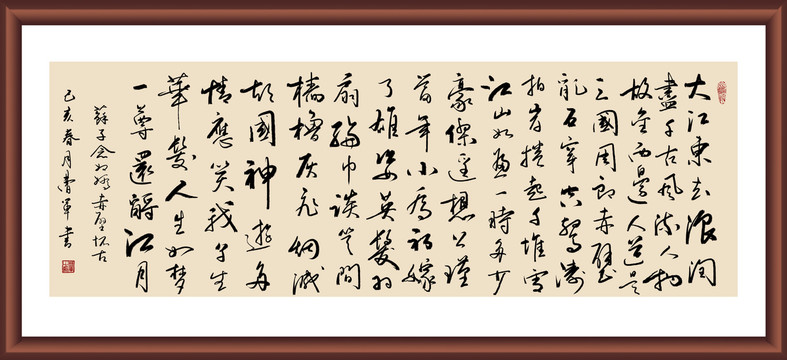 大江東去浪淘
盡千古風流人物
故壘西邊人道是
三國周郎赤壁
亂石穿空驚濤
拍岸捲起千堆雪
江山如畫一時多少
豪傑遥想公瑾
當年小喬初嫁
了雄姿英發羽
扇綸巾談笑間
檣櫓灰飛烟滅
故國神遊多
情應笑我早生
華髮人生如夢
一尊還酹江月
蘇子念奴嬌赤壁懷古
己亥春月軍書